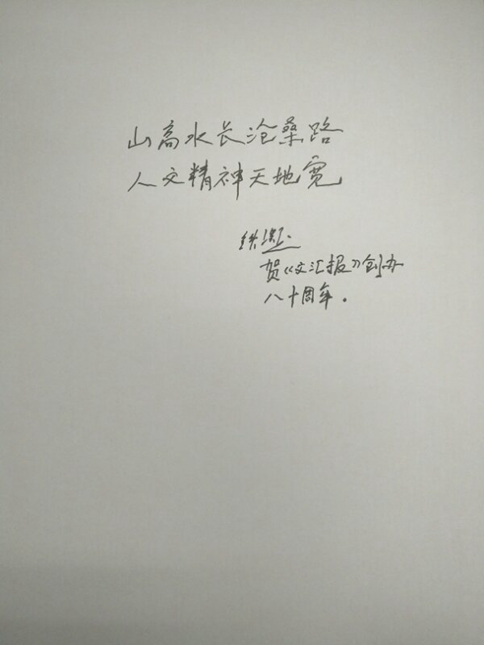 山高水长沧桑路
人文精神天地宽
贺《文汇报》创办
八十周年。